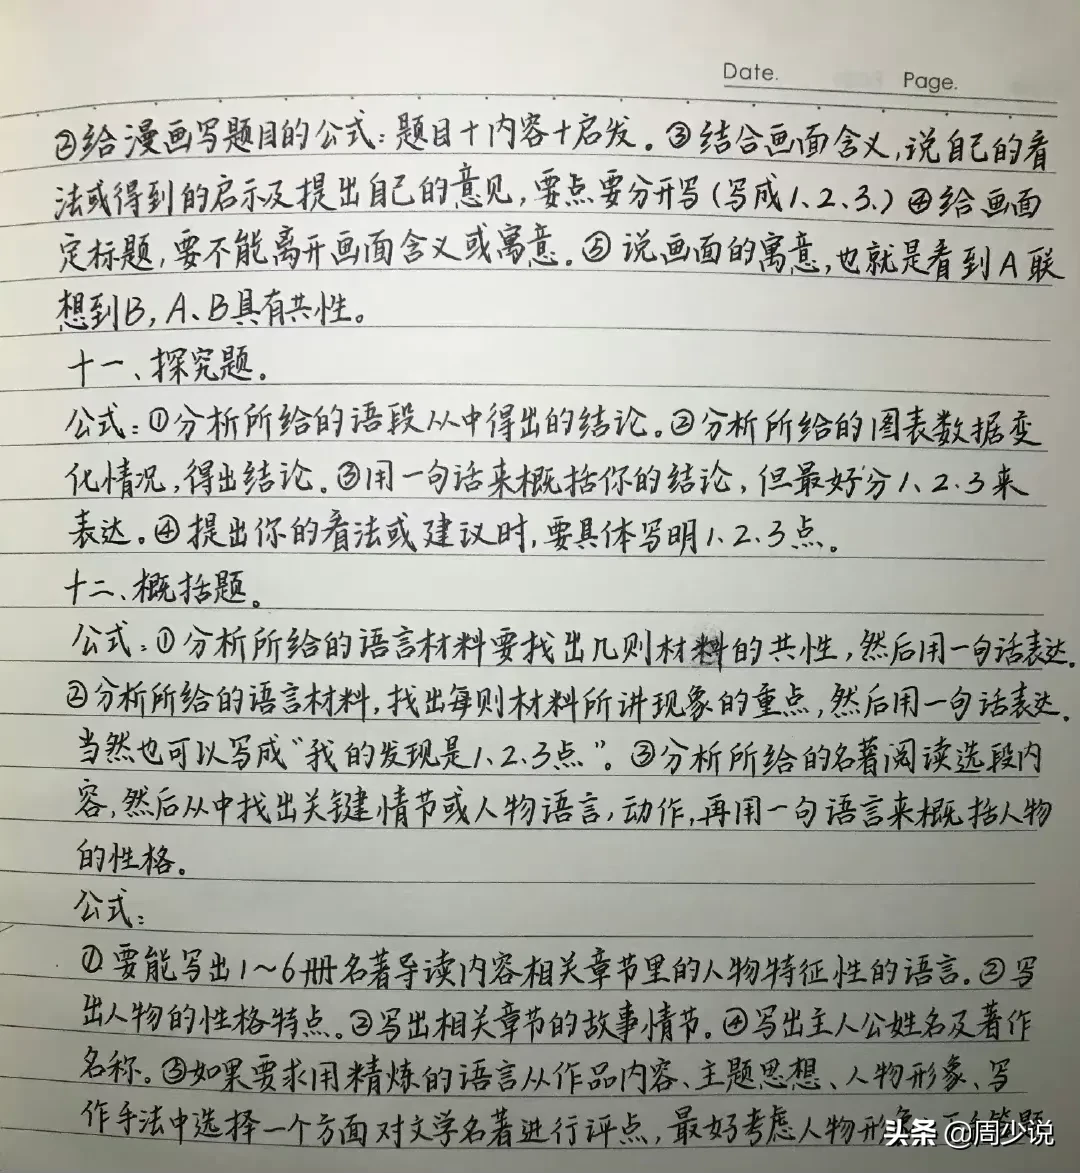 Date.
Page.
②给漫画写题目的公式：题目十内容十启发。③结合画面含义，说自己的看
法或得到的启示及提出自己的意见，要点要分开写（写成1、2、3、）④给画面
定标题，要不能离开画面含义或寓意。⑤说画面的寓意，也就是看到A联
想到B，A、B具有共性。
十一、探究题。
公式：①分析所给的语段从中得出的结论。②分析所给的图表数据变
化情况，得出结论。③用一句话来概括你的结论，但最好分1、2、3来
表达。④提出你的看法或建议时，要具体写明1、2、3点。
十二、概括题。
公式：①分析所给的语言材料要找出几则材料的共性，然后用一句话表达。
②分析所给的语言材料，找出每则材料所讲现象的重点，然后用一句话表达。
当然也可以写成“我的发现是1、2、3点”。③分析所给的名著阅读选段内
容，然后从中找出关键情节或人物语言，动作，再用一句语言来概括人物
的性格。
公式：
①要能写出1～6册名著导读内容相关章节里的人物特征性的语言。②写
出人物的性格特点。③写出相关章节的故事情节。④写出主人公姓名及著作
名称。⑤如果要求用精炼的语言从作品内容、主题思想、人物形象、写
作手法中选择一个方面对文学名著进行评点，最好考虑人物形
头条 @周少说